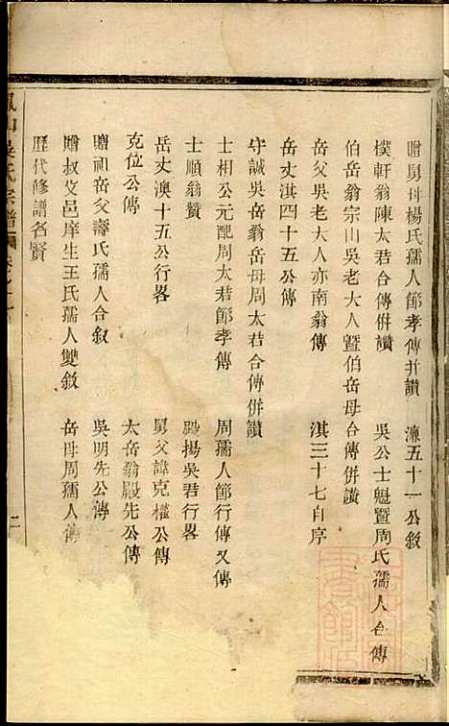 贈舅母楊氏孺人節孝傳并讚　濂五十一公敘
樸軒翁陳太君合傳併讚　吳公士魁暨周氏孺人合傳
伯岳翁宗山吳老大人暨伯岳母合傳併讚
岳父吳老大人亦南翁傳　淇三十七自序
岳丈淇四十五公傳
守誠吳岳翁岳母周太君合傳併讚
士相公元配周太君節孝傳　周孺人節行傳又傳
士順翁贊　颺揚吳君行畧
岳丈澳十五公行畧　舅父諱克權公傳
克位公傳　太岳翁殿先公傳
贈祖岳父壽氏孺人合敘　吳明先公傳
贈叔丈邑庠生王氏孺人雙敘　岳母周孺人傳
歷代修譜名賢
吳氏宗譜
二